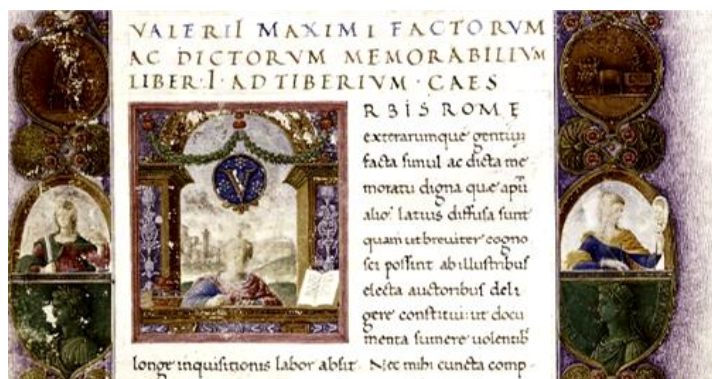 VALERII MAXIMI FACTORVM
AC DICTORVM MEMORABILIVM
LIBER·I·AD TIBERIVM·CAES
V
RBIS ROMĘ
exterarumque gentiū
facta simul ac dicta me
moratu digna quę apđ
alios latius diffusa sunt
quam ut breuiter cogno
sci possint ab illustribus
electa auctoribus deli
gere constitui: ut docu
menta sumere uolentib
longe inquisitionis labor absit. Nec mihi cuncta comp-